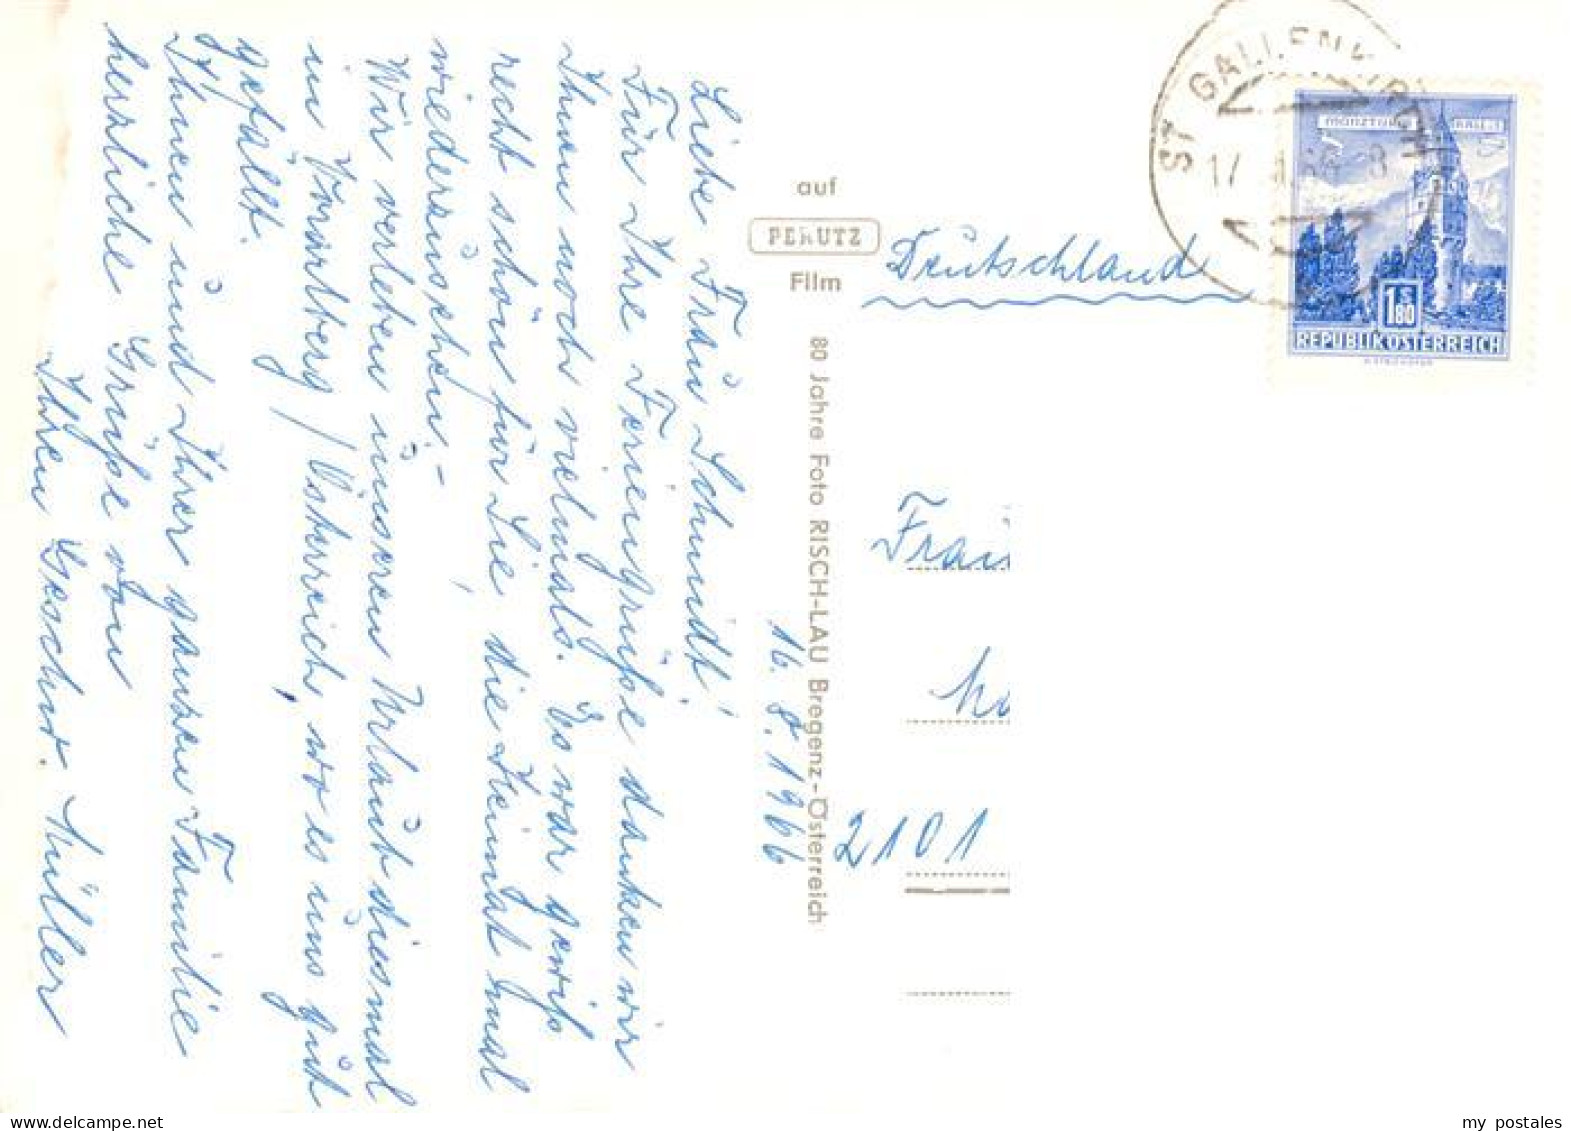 Liebe Frau Schmidt!
Für Ihre Feriengrüße danken wir
Ihnen noch vielmals. Es war gewiß
recht schön für Sie, die Heimat mal
wiederzusehen. –
Wir verleben unseren Urlaub diesmal
in Vorarlberg / Österreich, wo es uns gut
gefällt.
Ihnen und Ihrer ganzen Familie
herzliche Grüße von
Ihren Geschw. Müller
16. 8. 1966
auf
PERUTZ
Film
80 Jahre Foto RISCH-LAU Bregenz-Österreich
Deutschland
Frau
2101
ST GALLENKIRCH
17 66-8
MÜNZTURM HALL i. T.
1.80 S
REPUBLIK ÖSTERREICH
my postales